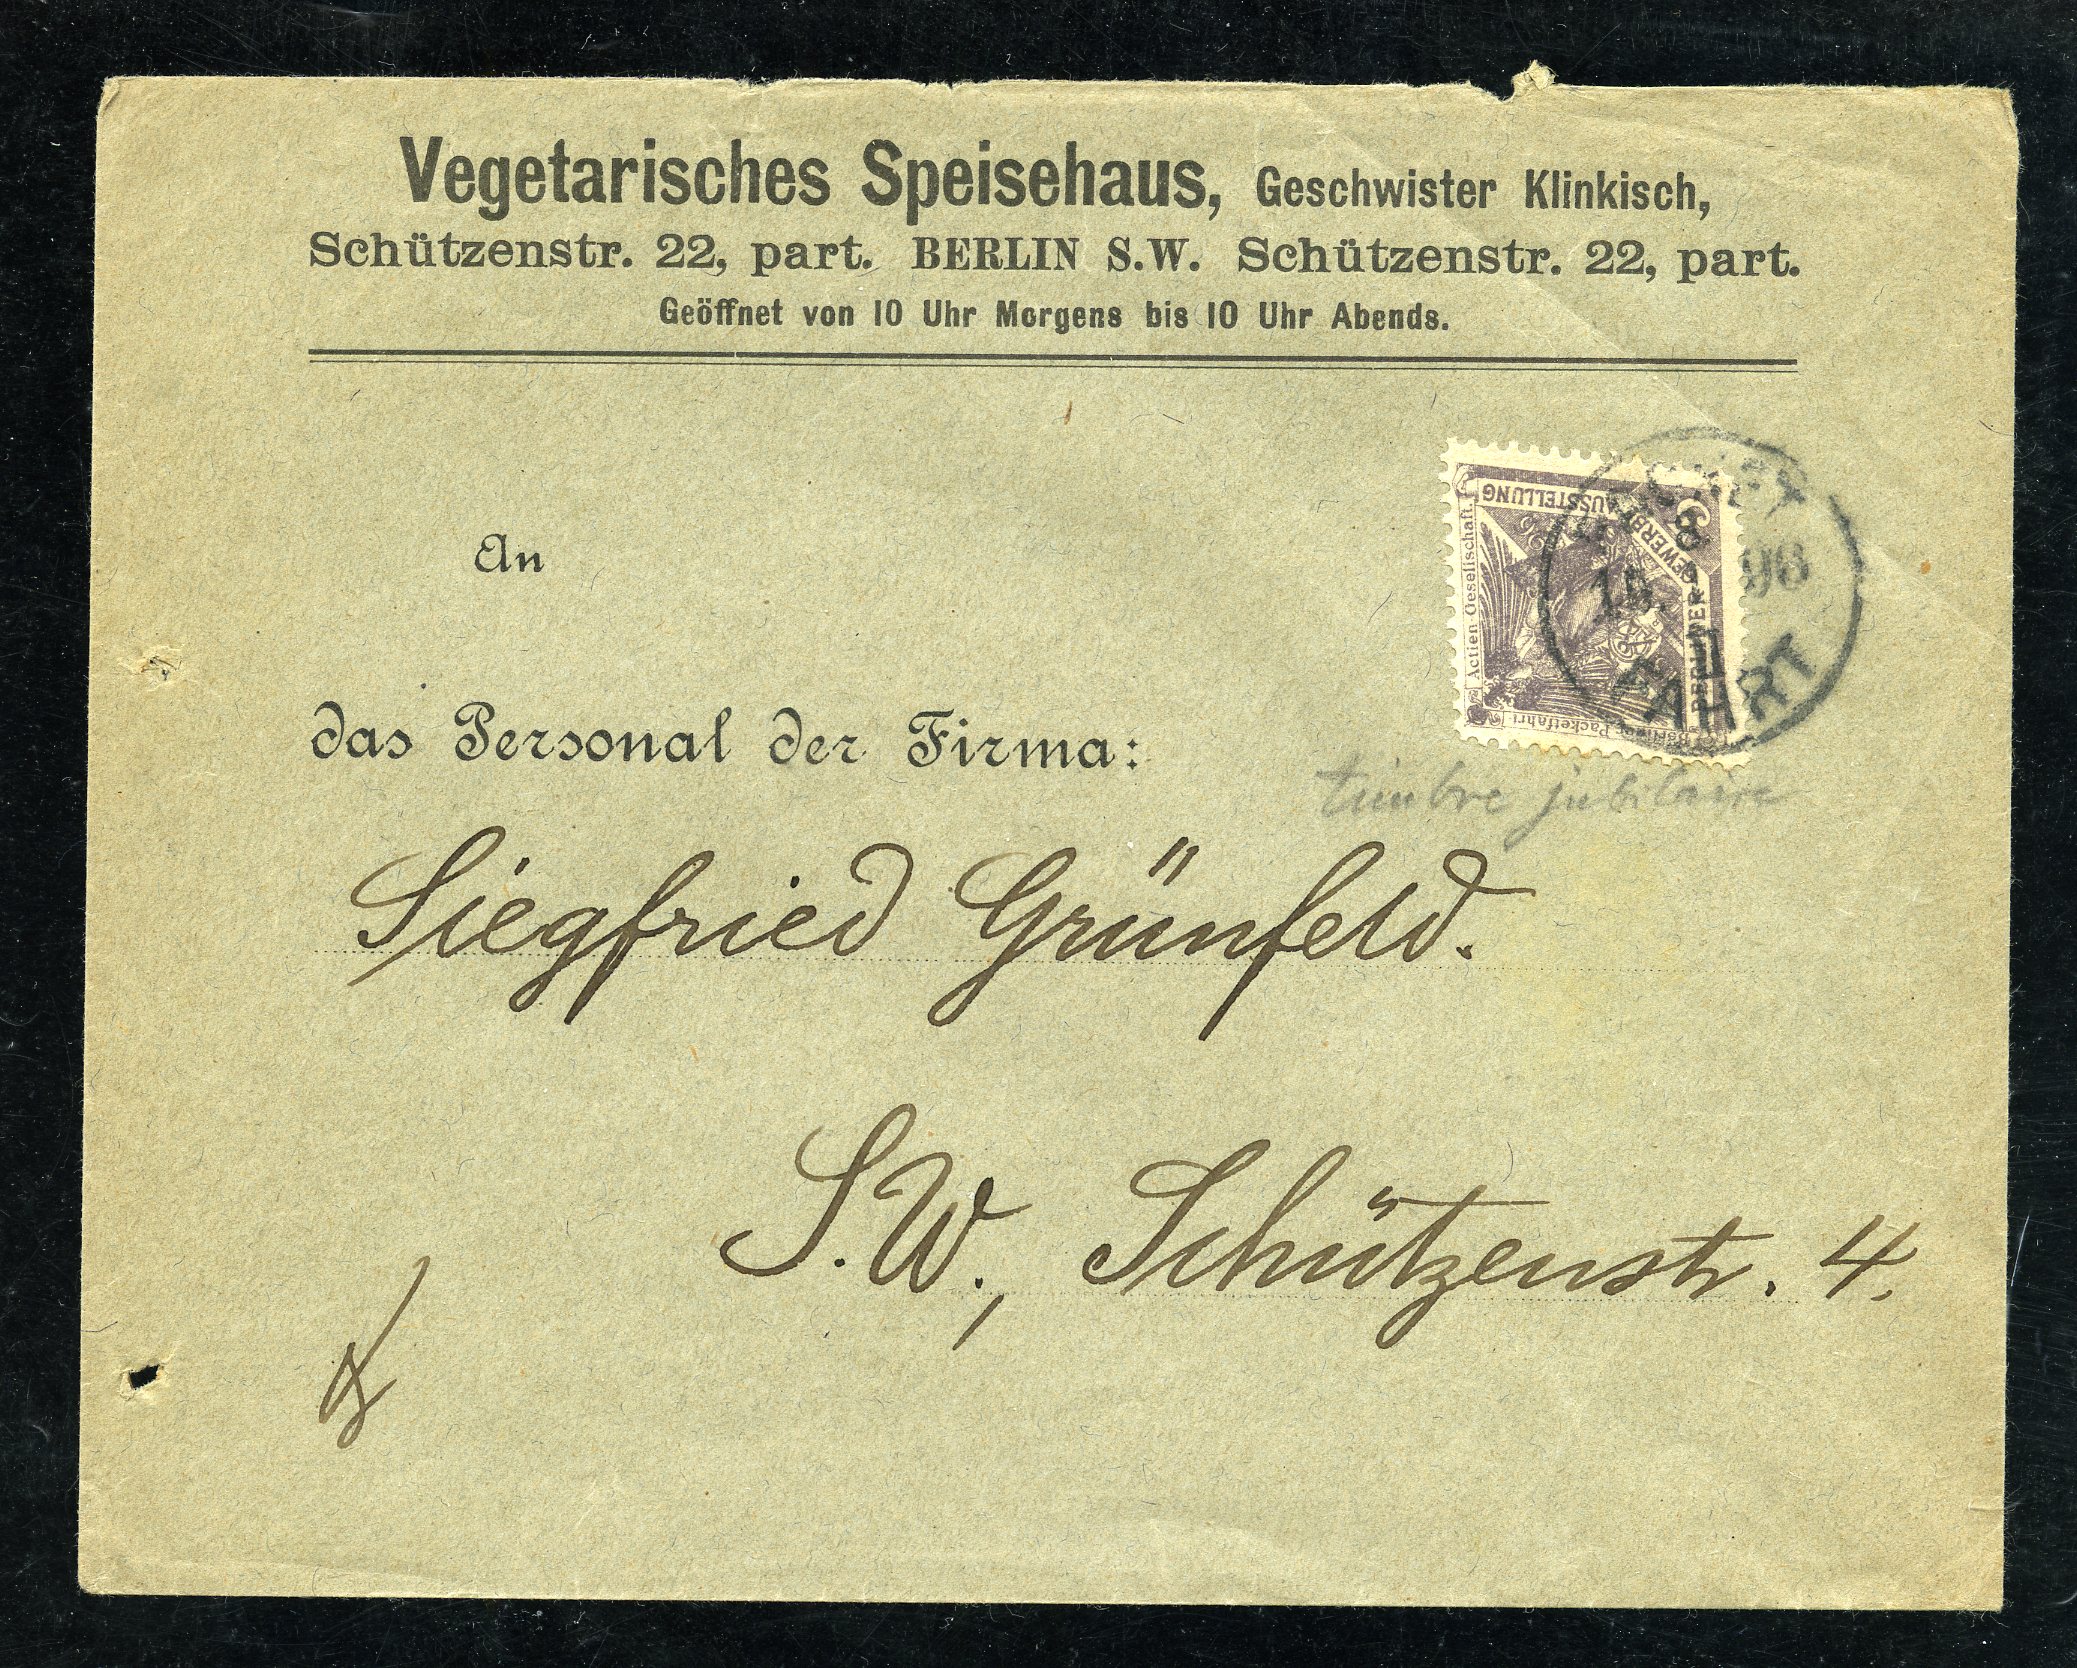 Vegetarisches Speisehaus, Geschwister Klinkisch,
Schützenstr. 22, part. BERLIN S.W. Schützenstr. 22, part.
Geöffnet von 10 Uhr Morgens bis 10 Uhr Abends.
BERLINER GEWERBE AUSSTELLUNG
Berliner Packetfahrt Actien-Gesellschaft.
3
8
96
FAHRT
An
das Personal der Firma:
timbre jubilaire
Siegfried Grünfeld.
S.W., Schützenstr. 4.